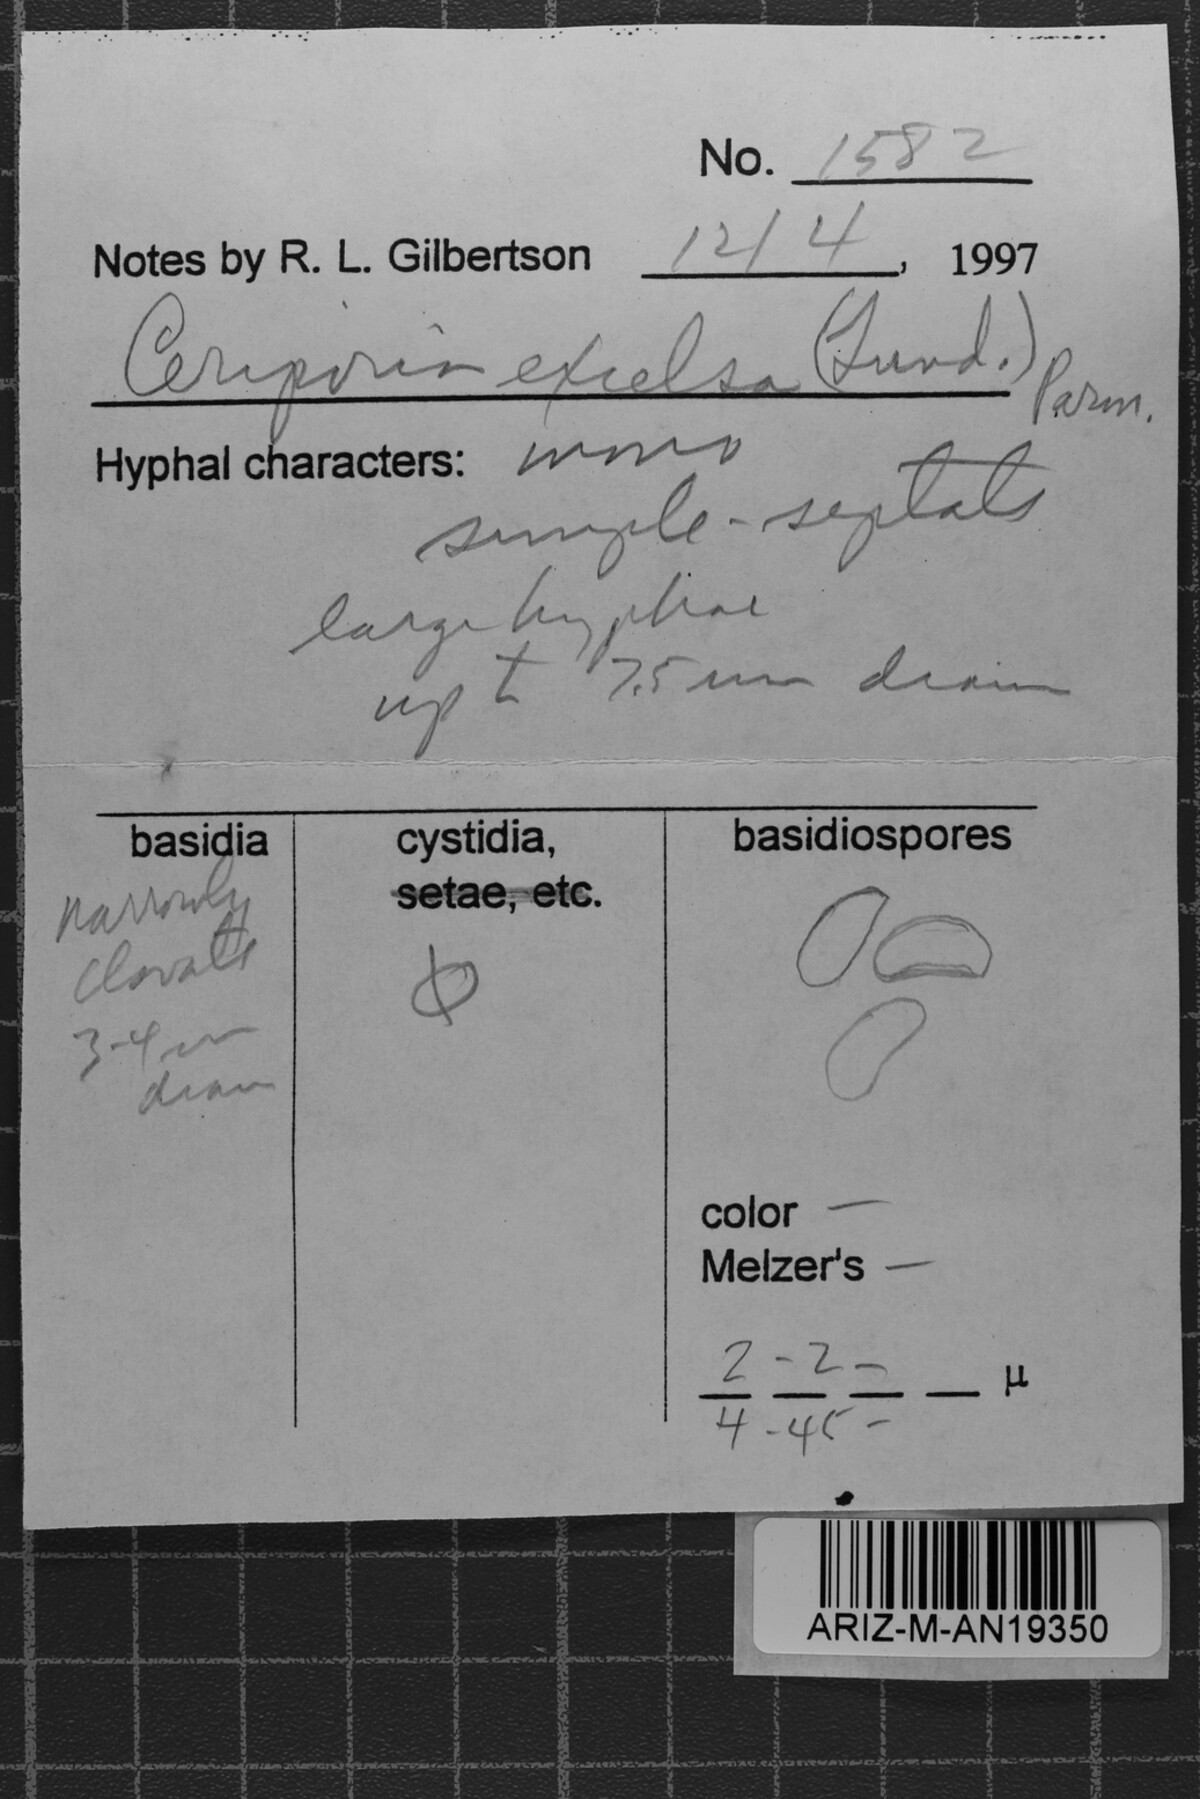 No. 1582
Notes by R. L. Gilbertson 12/4, 1997
Ceriporia excelsa (Lund.) Parm.
Hyphal characters: mono
simple-septate
large hyphae
up to 7.5 µm diam
basidia
narrowly
clavate
3-4 µm
diam
cystidia,
setae, etc.
φ
basidiospores
color —
Melzer's —
2 - 2 -
µ
4 - 45 -
ARIZ-M-AN19350